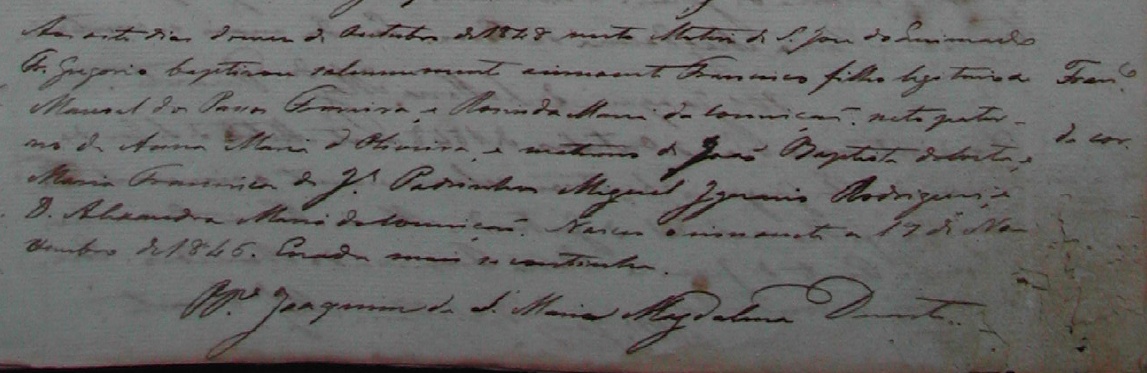 Aos sete dias do mes de Outubro de 1848 nesta Matriz de S. Jose do
Fr. Gregorio baptisou solennemente o innocente Francisco filho legitimo de
Manoel dos Passos Ferreira, e Rosinda Maria da Conceiçaõ. neto pater-
no de Anna Maria d'Oliveira, e materno de Joaõ Baptista da Costa, e
Maria Francisca de J.s Padrinhos Miguel Ignacio Rodrigues, e
D. Alexandra Maria da Conceiçaõ. Nasceo o innocente a 17 de No-
vembro de 1846. E nada mais se continha.
Joaquim de S. Maria Magdalena Duarte.
Fran.co